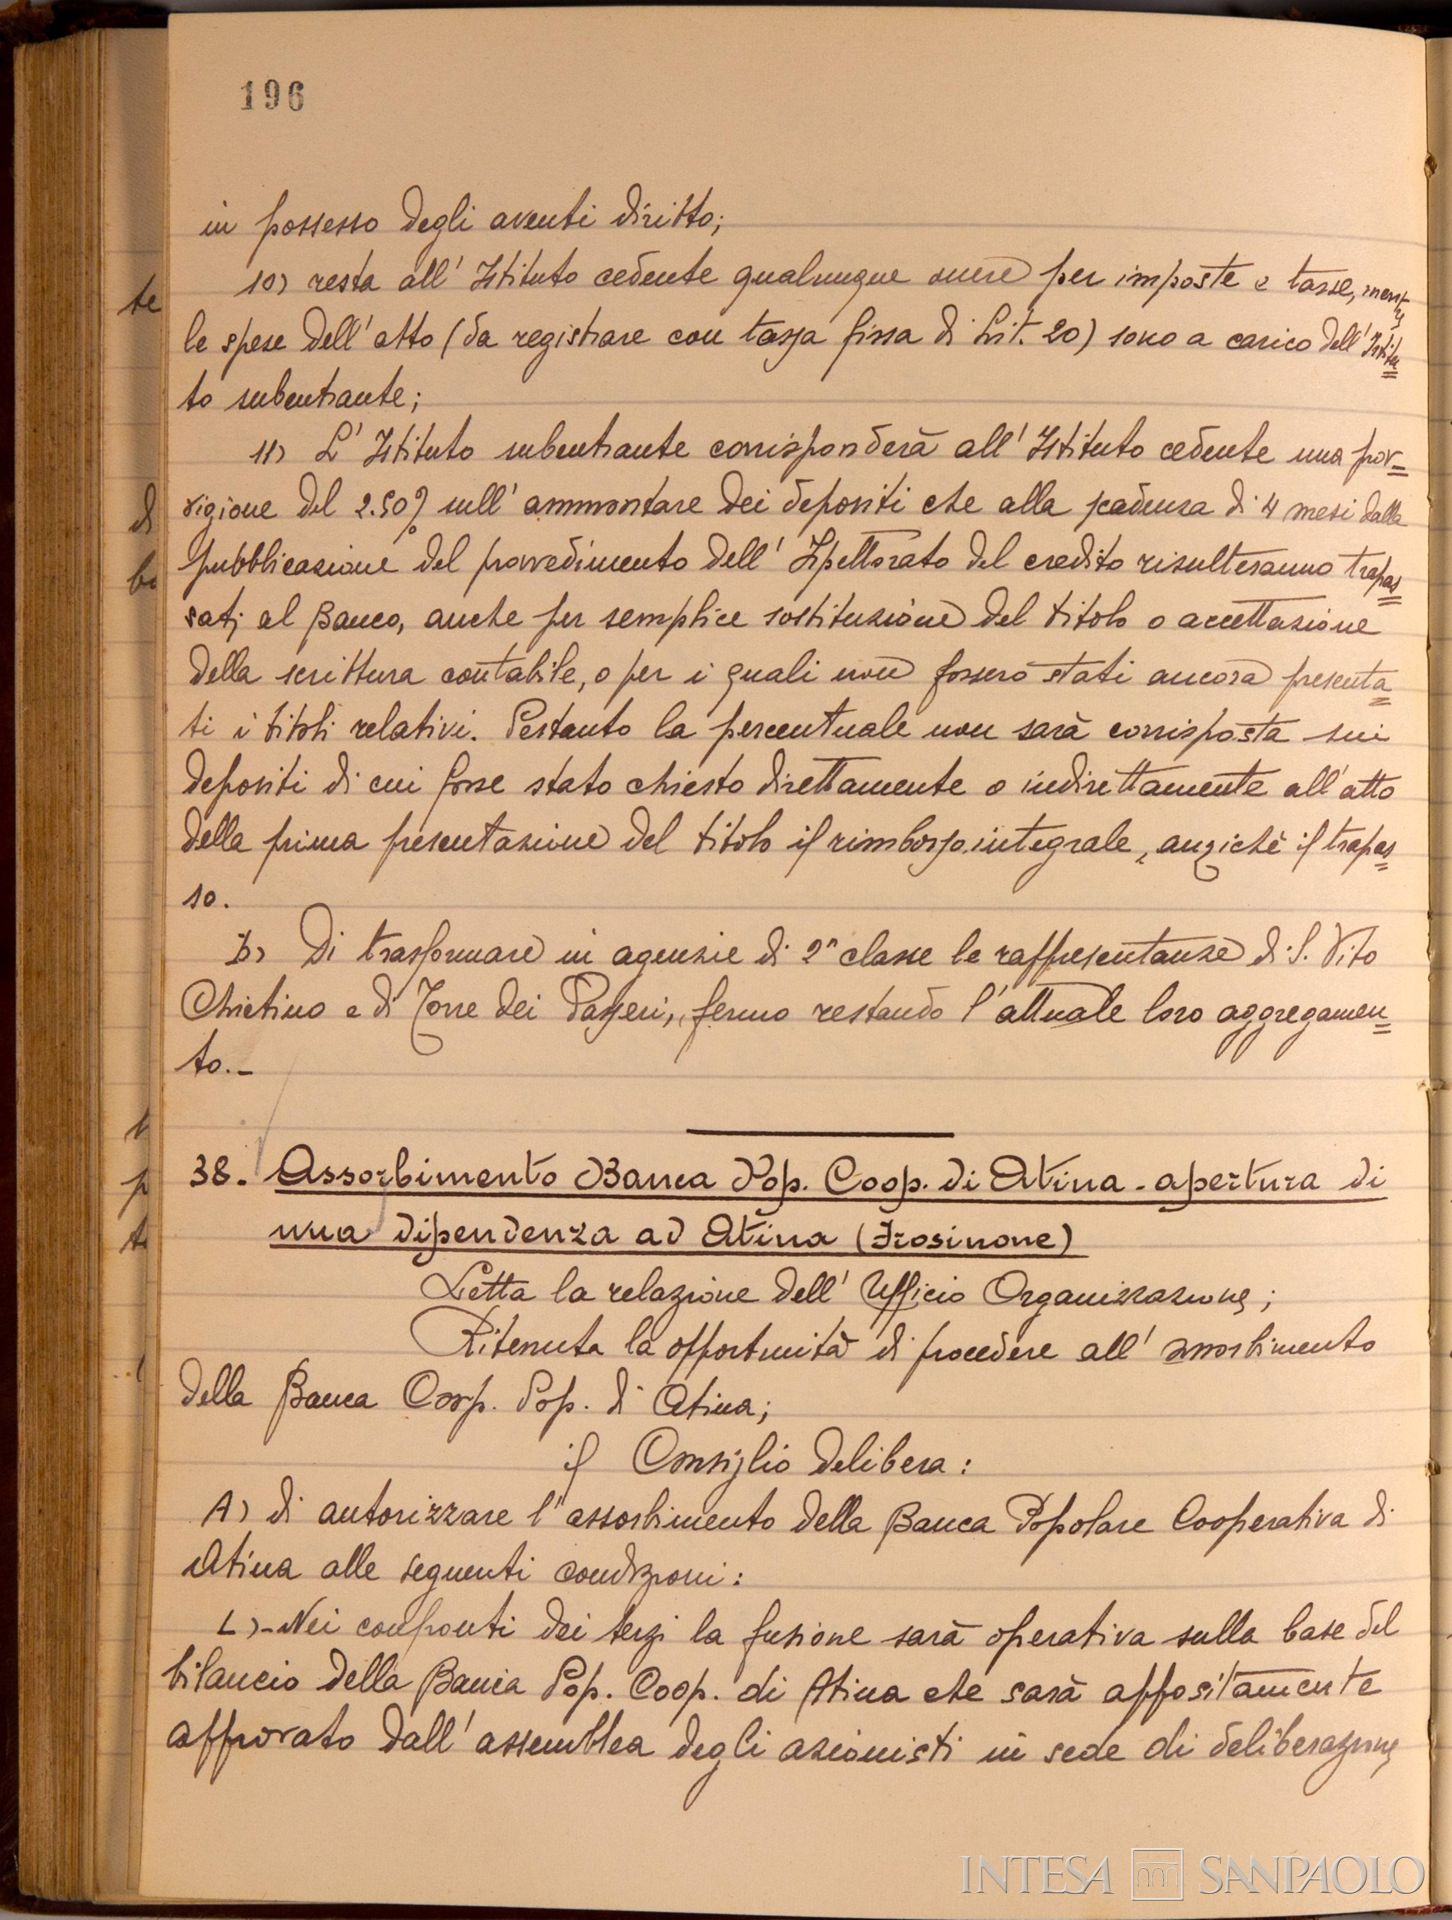 196
in possesso degli aventi diritto;
10) resta all' Istituto cedente qualunque onere per imposte e tasse, mentre
le spese dell' atto (da registrare con tassa fissa di Lit. 20) sono a carico dell' Istitu=
to subentrante;
11) L' Istituto subentrante corrisponderà all' Istituto cedente una prov=
vigione del 2.50% sull' ammontare dei depositi che alla scadenza di 4 mesi dalla
pubblicazione del provvedimento dell' Ispettorato del credito risulteranno trapas=
sati al Banco, anche per semplice sostituzione del titolo o accettazione
della scrittura contabile, o per i quali non fossero stati ancora presenta=
ti i titoli relativi. Pertanto la percentuale non sarà corrisposta sui
depositi di cui fosse stato chiesto direttamente o indirettamente all' atto
della prima presentazione del titolo il rimborso integrale, anzichè il trapas=
so.
b) Di trasformare in agenzie di 2ª classe le rappresentanze di S. Vito
Chietino e di Torre dei Passeri, fermo restando l' attuale loro aggregamen=
to.-
38. Assorbimento Banca Pop. Coop. di Atina - apertura di
una dipendenza ad Atina (Frosinone)
Letta la relazione dell' Ufficio Organizzazione;
Ritenuta la opportunità di procedere all' assorbimento
della Banca Coop. Pop. di Atina;
il Consiglio delibera:
A) di autorizzare l' assorbimento della Banca Popolare Cooperativa di
Atina alle seguenti condizioni:
1)- Nei confronti dei terzi la fusione sarà operativa sulla base del
bilancio della Banca Pop. Coop. di Atina che sarà appositamente
approvato dall' assemblea degli azionisti in sede di deliberazione
INTESA SANPAOLO